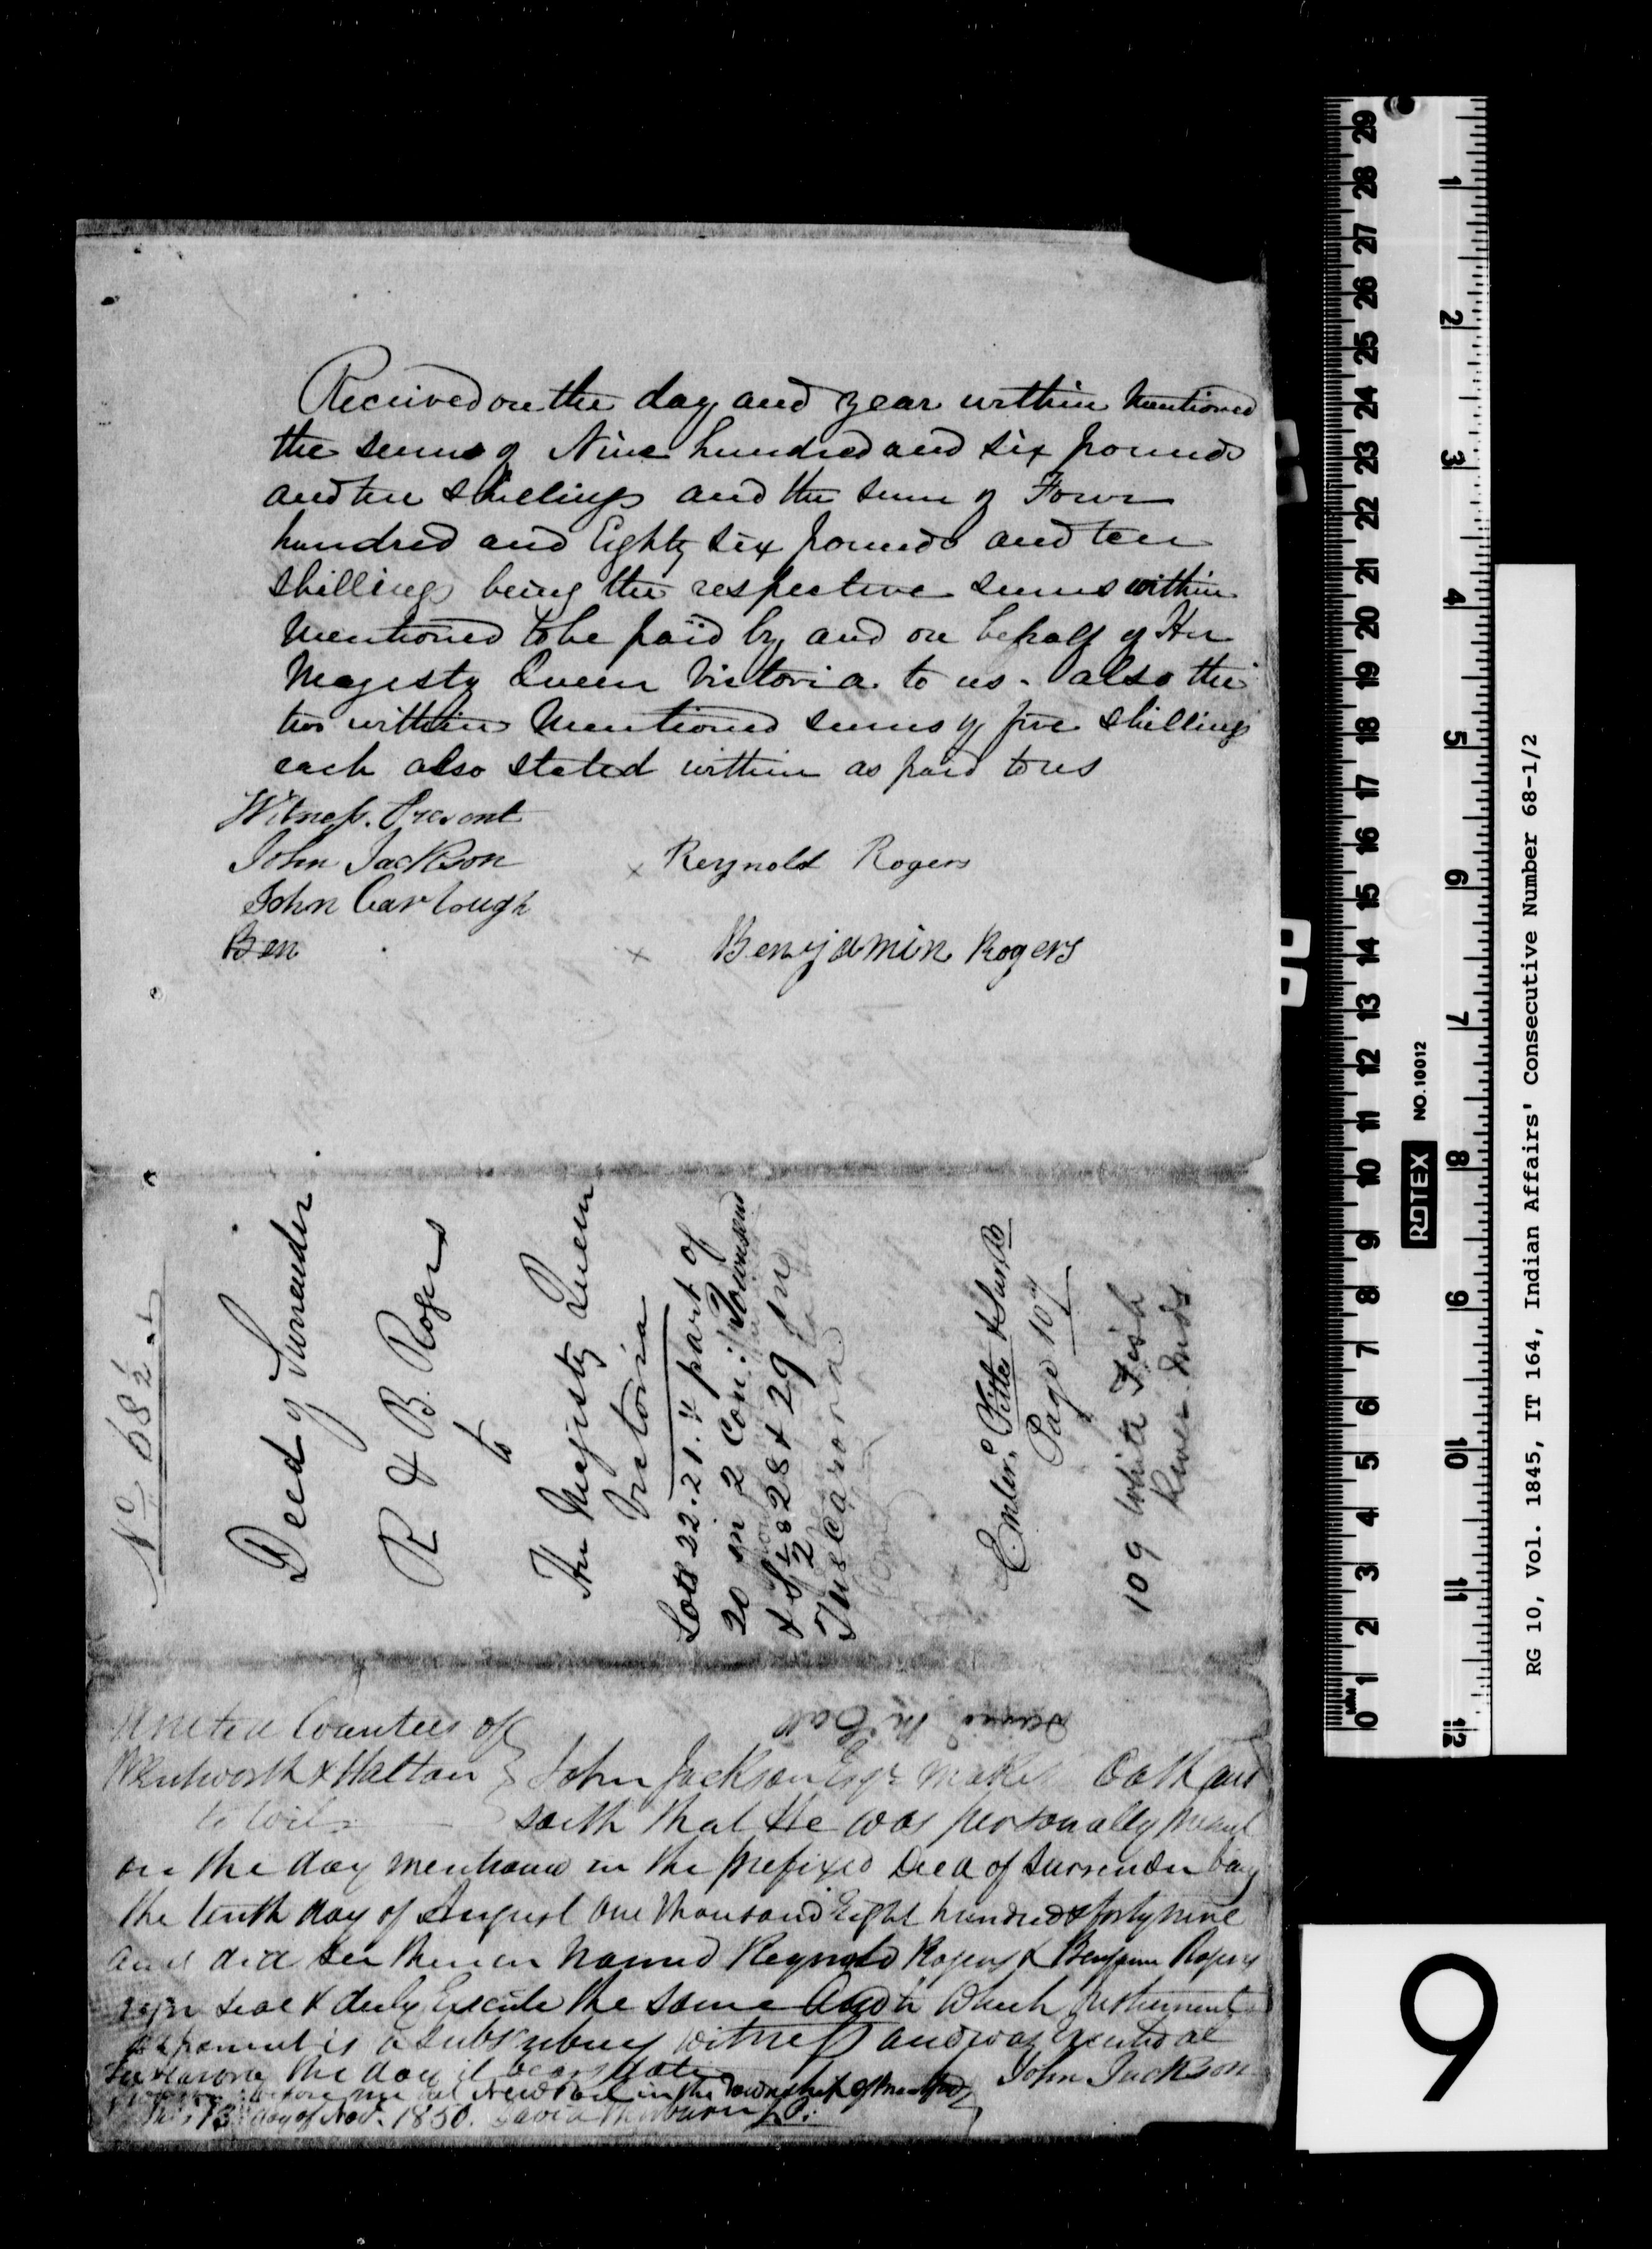 Received on the day and year within mentioned
the sums of Nine hundred and six pounds
and ten shillings and the sum of Four
hundred and Eighty six pounds and ten
shillings being the respective sums within
mentioned to be paid by and on behalf of Her
Majesty Queen Victoria to us. also the
two within mentioned sums of five shillings
each also stated within as paid to us
Witness. Present
John Jackson
John Carlough
Ben
x Reynold Rogers
x Benjamin Rogers
No 68 1/2
Deed of Surrender
R & B. Rogers
to
Her Majesty Queen
Victoria
Lots 22. 21. & part of
20 in 2 Con: Townsend
& S 1/2 28 & 29 1
Tuscarora
Enterd
Page 107
109 White Fish
River Inds
United Counties of
Wentworth & Halton
to wit:
John Jackson Esqr maketh Oath and
saith that He was personally present
on the day mentioned in the prefixed Deed of Surrender being
the tenth day of August One thousand Eight hundred & forty nine
and did see therein named Reynold Rogers & Benjamin Rogers
sign seal & duly Execute the same to Which Instrument
deponent is a subscribing witness and was Executed at
Tuscarora the day it bears date
John Jackson
before me at Newport in the Township of
this 13 day of Nov. 1850. David Thorburn J.P.
RG 10, Vol. 1845, IT 164, Indian Affairs' Consecutive Number 68-1/2
ROTEX NO.10012
0 1 2 3 4 5 6 7 8 9 10 11 12 13 14 15 16 17 18 19 20 21 22 23 24 25 26 27 28 29
1 2 3 4 5 6 7 8 9 10 11 12
9